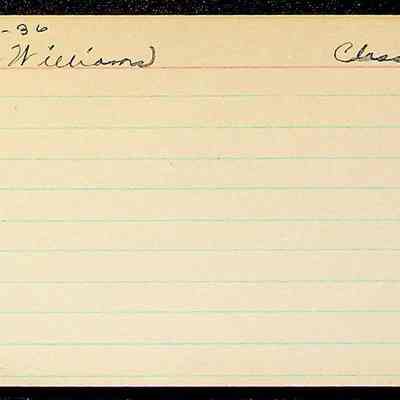 -36
Williams) Class